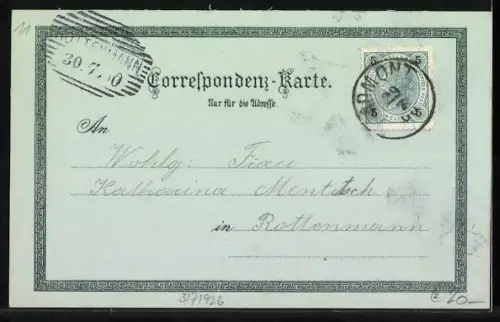 11
ROTTENMANN
30.7.00
Correspondenz-Karte.
Nur für die Adresse.
5 5
5 5
ADMONT
29/7
An
Wohlg: Frau
Katharina Mentitsch
in Rottenmann
3171926